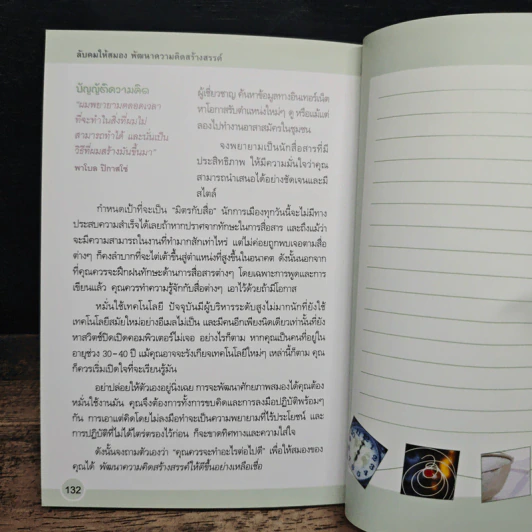 ลับคมให้สมอง พัฒนาความคิดสร้างสรรค์
ปัญญ์ติดความคิด
"ผมพยายามตลอดเวลา
ที่จะทำในสิ่งที่ผมไม่
สามารถทำได้ และนั่นเป็น
วิธีที่ผมสร้างมันขึ้นมา"
พาโบล ปิกาสโซ่
ผู้เชี่ยวชาญ ค้นหาข้อมูลทางอินเทอร์เน็ต
หาโอกาสรับตำแหน่งใหม่ๆ ดู หรือแม้แต่
ลองไปทำงานอาสาสมัครในชุมชน
จงพยายามเป็นนักสื่อสารที่มี
ประสิทธิภาพ ให้มีความมั่นใจว่าคุณ
สามารถนำเสนอได้อย่างชัดเจนและมี
สไตล์
กำหนดเป้าที่จะเป็น "มิตรกับสื่อ" นักการเมืองทุกวันนี้จะไม่มีทาง
ประสบความสำเร็จได้เลยถ้าหากปราศจากทักษะในการสื่อสาร และถึงแม้ว่า
จะมีความสามารถในงานที่ทำมากสักเท่าไหร่ แต่ไม่ค่อยถูกพบเจอตามสื่อ
ต่างๆ ก็คงลำบากที่จะไต่เต้าขึ้นสู่ตำแหน่งที่สูงขึ้นในอนาคต ดังนั้นนอกจาก
ที่คุณควรจะฝึกฝนทักษะด้านการสื่อสารต่างๆ โดยเฉพาะการพูดและการ
เขียนแล้ว คุณควรทำความรู้จักกับสื่อต่างๆ เอาไว้ด้วยถ้ามีโอกาส
หมั่นใช้เทคโนโลยี ปัจจุบันมีผู้บริหารระดับสูงไม่มากนักที่ยังใช้
เทคโนโลยีสมัยใหม่อย่างอีเมลไม่เป็น และมีคนอีกเพียงนิดเดียวเท่านั้นที่ยัง
หาสวิตช์ปิดเปิดคอมพิวเตอร์ไม่เจอ อย่างไรก็ตาม หากคุณเป็นคนที่อยู่ใน
อายุช่วง 30-40 ปี แม้คุณอาจจะรังเกียจเทคโนโลยีใหม่ๆ เหล่านี้ก็ตาม คุณ
ก็ควรเริ่มเปิดใจที่จะเรียนรู้มัน
อย่าปล่อยให้ตัวเองอยู่นิ่งเฉย การจะพัฒนาศักยภาพสมองได้คุณต้อง
หมั่นใช้งานมัน คุณจึงต้องการทั้งการขบคิดและการลงมือปฏิบัติพร้อมๆ
กัน การเอาแต่คิดโดยไม่ลงมือทำจะเป็นความพยายามที่ไร้ประโยชน์ และ
การปฏิบัติที่ไม่ได้ไตร่ตรองไว้ก่อน ก็จะขาดทิศทางและความใส่ใจ
ดังนั้นจงถามตัวเองว่า "คุณควรจะทำอะไรต่อไปดี" เพื่อให้สมองของ
คุณได้ พัฒนาความคิดสร้างสรรค์ให้ดีขึ้นอย่างเหลือเชื่อ
132